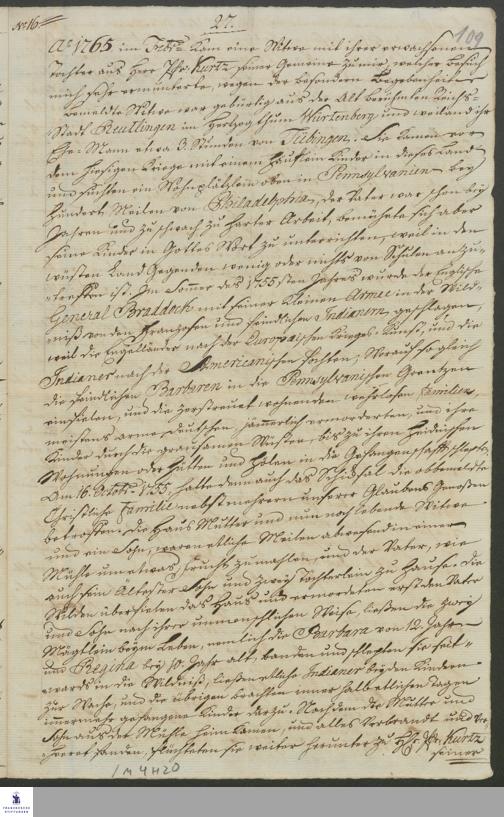 No 16
27.
109
Ao 1765 im Febr. kam eine Witwe mit ihrer erwachsenen
Tochter aus Herr Pfr. Kurtz seiner Gemeine zu mir, welcher Besuch
mich sehr ermunterte, wegen der besondern Begebenheiten
bemeldte Witwe war gebürtig aus der Alt berühmten Reichs-
Stadt Reutlingen im Hertzogthum Würtenberg und weiland ihr
Ehe-Mann etwa 3 Stunden von Tübingen. Sie kamen vor
dem hiesigen Kriege mit einem Häuflein Kinder in dieses Land
und suchten ein Wohnplätzlein oben in Pennsylvanien bey
Hundert Meilen von Philadelphia, der Vater war schon bey
Jahren und zu schwach zu harter Arbeit, bemühete sich aber
seine Kinder in Gottes Wort zu unterrichten, weil in den
wüsten Land Gegenden wenig oder nichts von Schulen anzu-
treffen ist. Im Sommer des 1755sten Jahres wurde der Englische
General Braddock mit seiner kleinen Armee in der Wild-
niß von den Franzosen und feindlichen Indianern geschlagen,
weil die Engelländer nach der Europaischen Krieges-Kunst, und die
Indianer nach der Americanischen fochten; Worauf so gleich
die feindlichen Barbaren in die Pennsylvanischen Grentzen
einfielen, und die zerstreuet wohnenden wehrlosen Familien,
meistens arme Deutschen, jämmerlich ermordeten, und ihre
Kinder durch die grausamen Wüsten, bis zu ihren Heidnischen
Wohnungen oder Hütten und Holen in die Gefangenschafft schlepten.
Am 16. Octobr. 1755. hatte denn auch das Schicksal die obbemeldte
Christliche Familie nebst mehrern unserer Glaubens Genossen
betroffen. Die Haus Mutter und nun noch lebende Witwe
und ein Sohn, waren etliche Meilen abwesend in einer
Mühle um etwas Frucht zu mahlen, und der Vater, wie
auch sein Ältester Sohn und zwey Töchterlein zu Hause. Die
Wilden überfielen das Haus und ermordeten erst den Vater
und Sohn nach ihrer unmenschlichen Weise, ließen die zwey
Mägdlein beym Leben, nemlich die Barbara von 12. Jahren
und Regina bey 10. Jahr alt, banden und schlepten sie seit-
wards in die Wildniß, ließen etliche Indianer bey den Kindern
zur Wache, und die übrigen brachten innerhalb etlichen Tagen
immer mehr gefangene Kinder dazu. Nachdem die Mutter und
Sohn aus der Mühle heim kamen, und alles verbrandt und ver-
heeret fanden, flüchteten sie weiter herunter zu H. Pfr. Kurtz
seiner
1 M 4 H 20
FRANCKESCHE
STIFTUNGEN